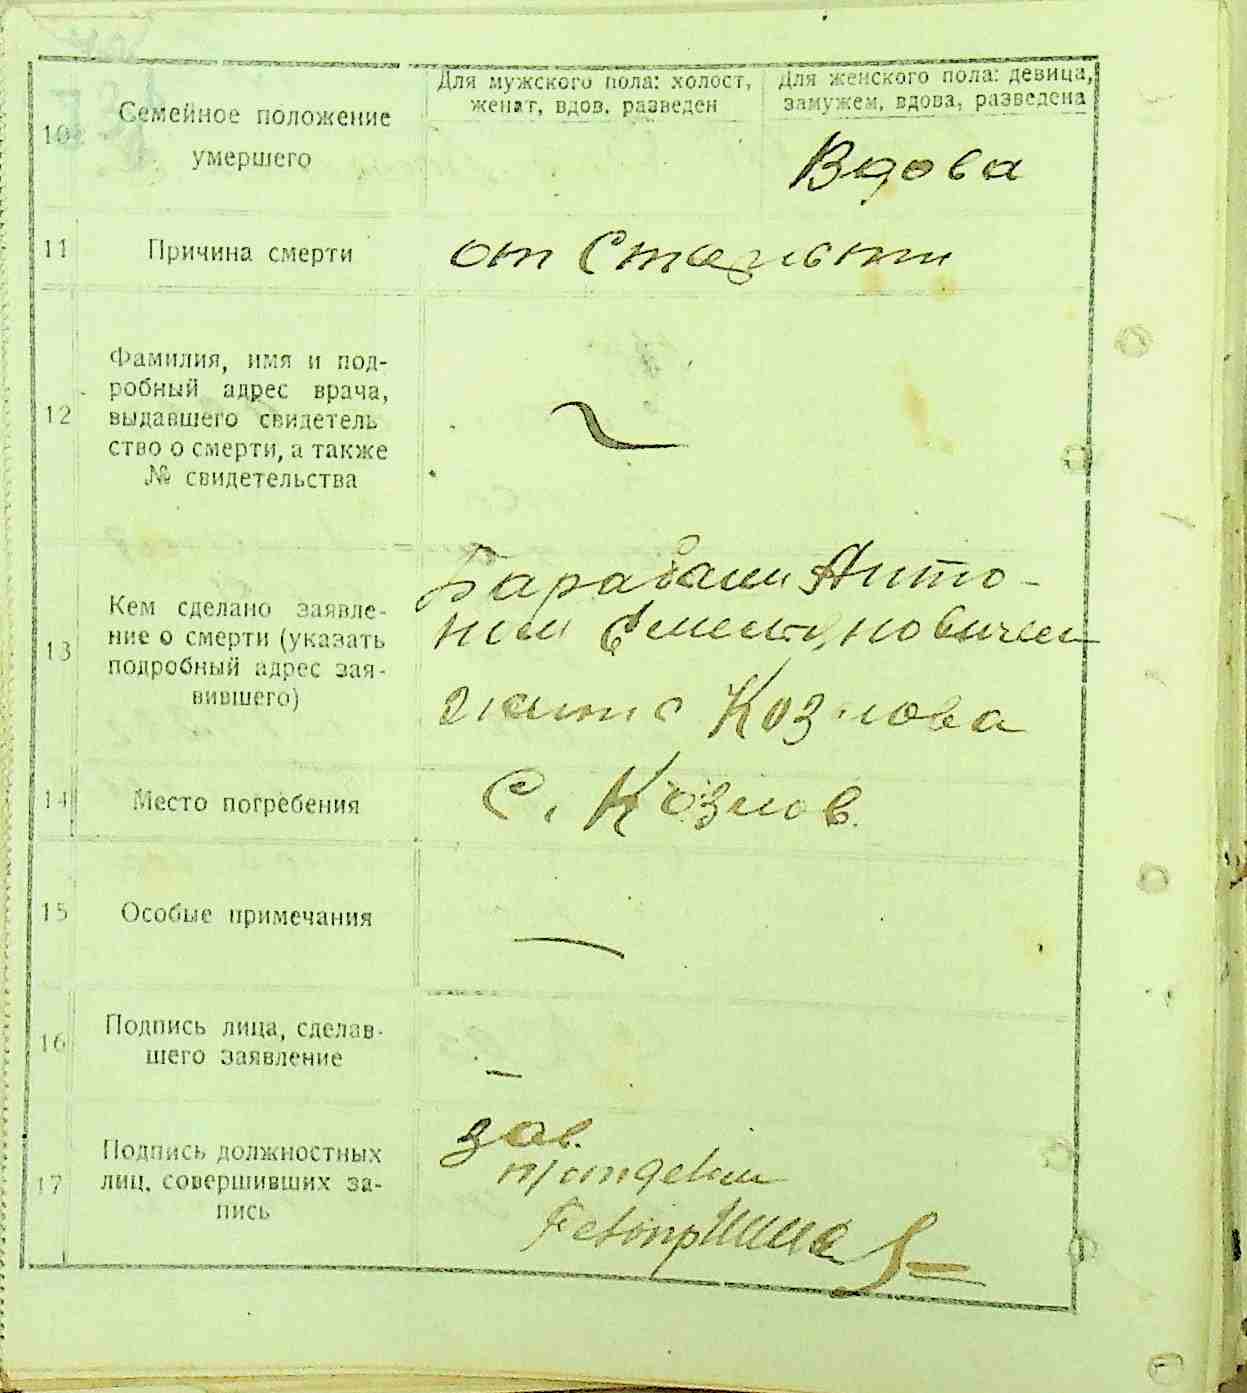 Для мужского пола: холост,
женат, вдов, разведен
Для женского пола: девица,
замужем, вдова, разведена
10
Семейное положение
умершего
Вдова
11
Причина смерти
от Старости
12
Фамилия, имя и под-
робный адрес врача,
выдавшего свидетель
ство о смерти, а также
№ свидетельства
13
Кем сделано заявле-
ние о смерти (указать
подробный адрес зая-
вившего)
Барабаш Анто-
ном
с
14
Место погребения
С. Козлов.
15
Особые примечания
—
16
Подпись лица, сделав-
шего заявление
—
17
Подпись должностных
лиц, совершивших за-
пись
зав.